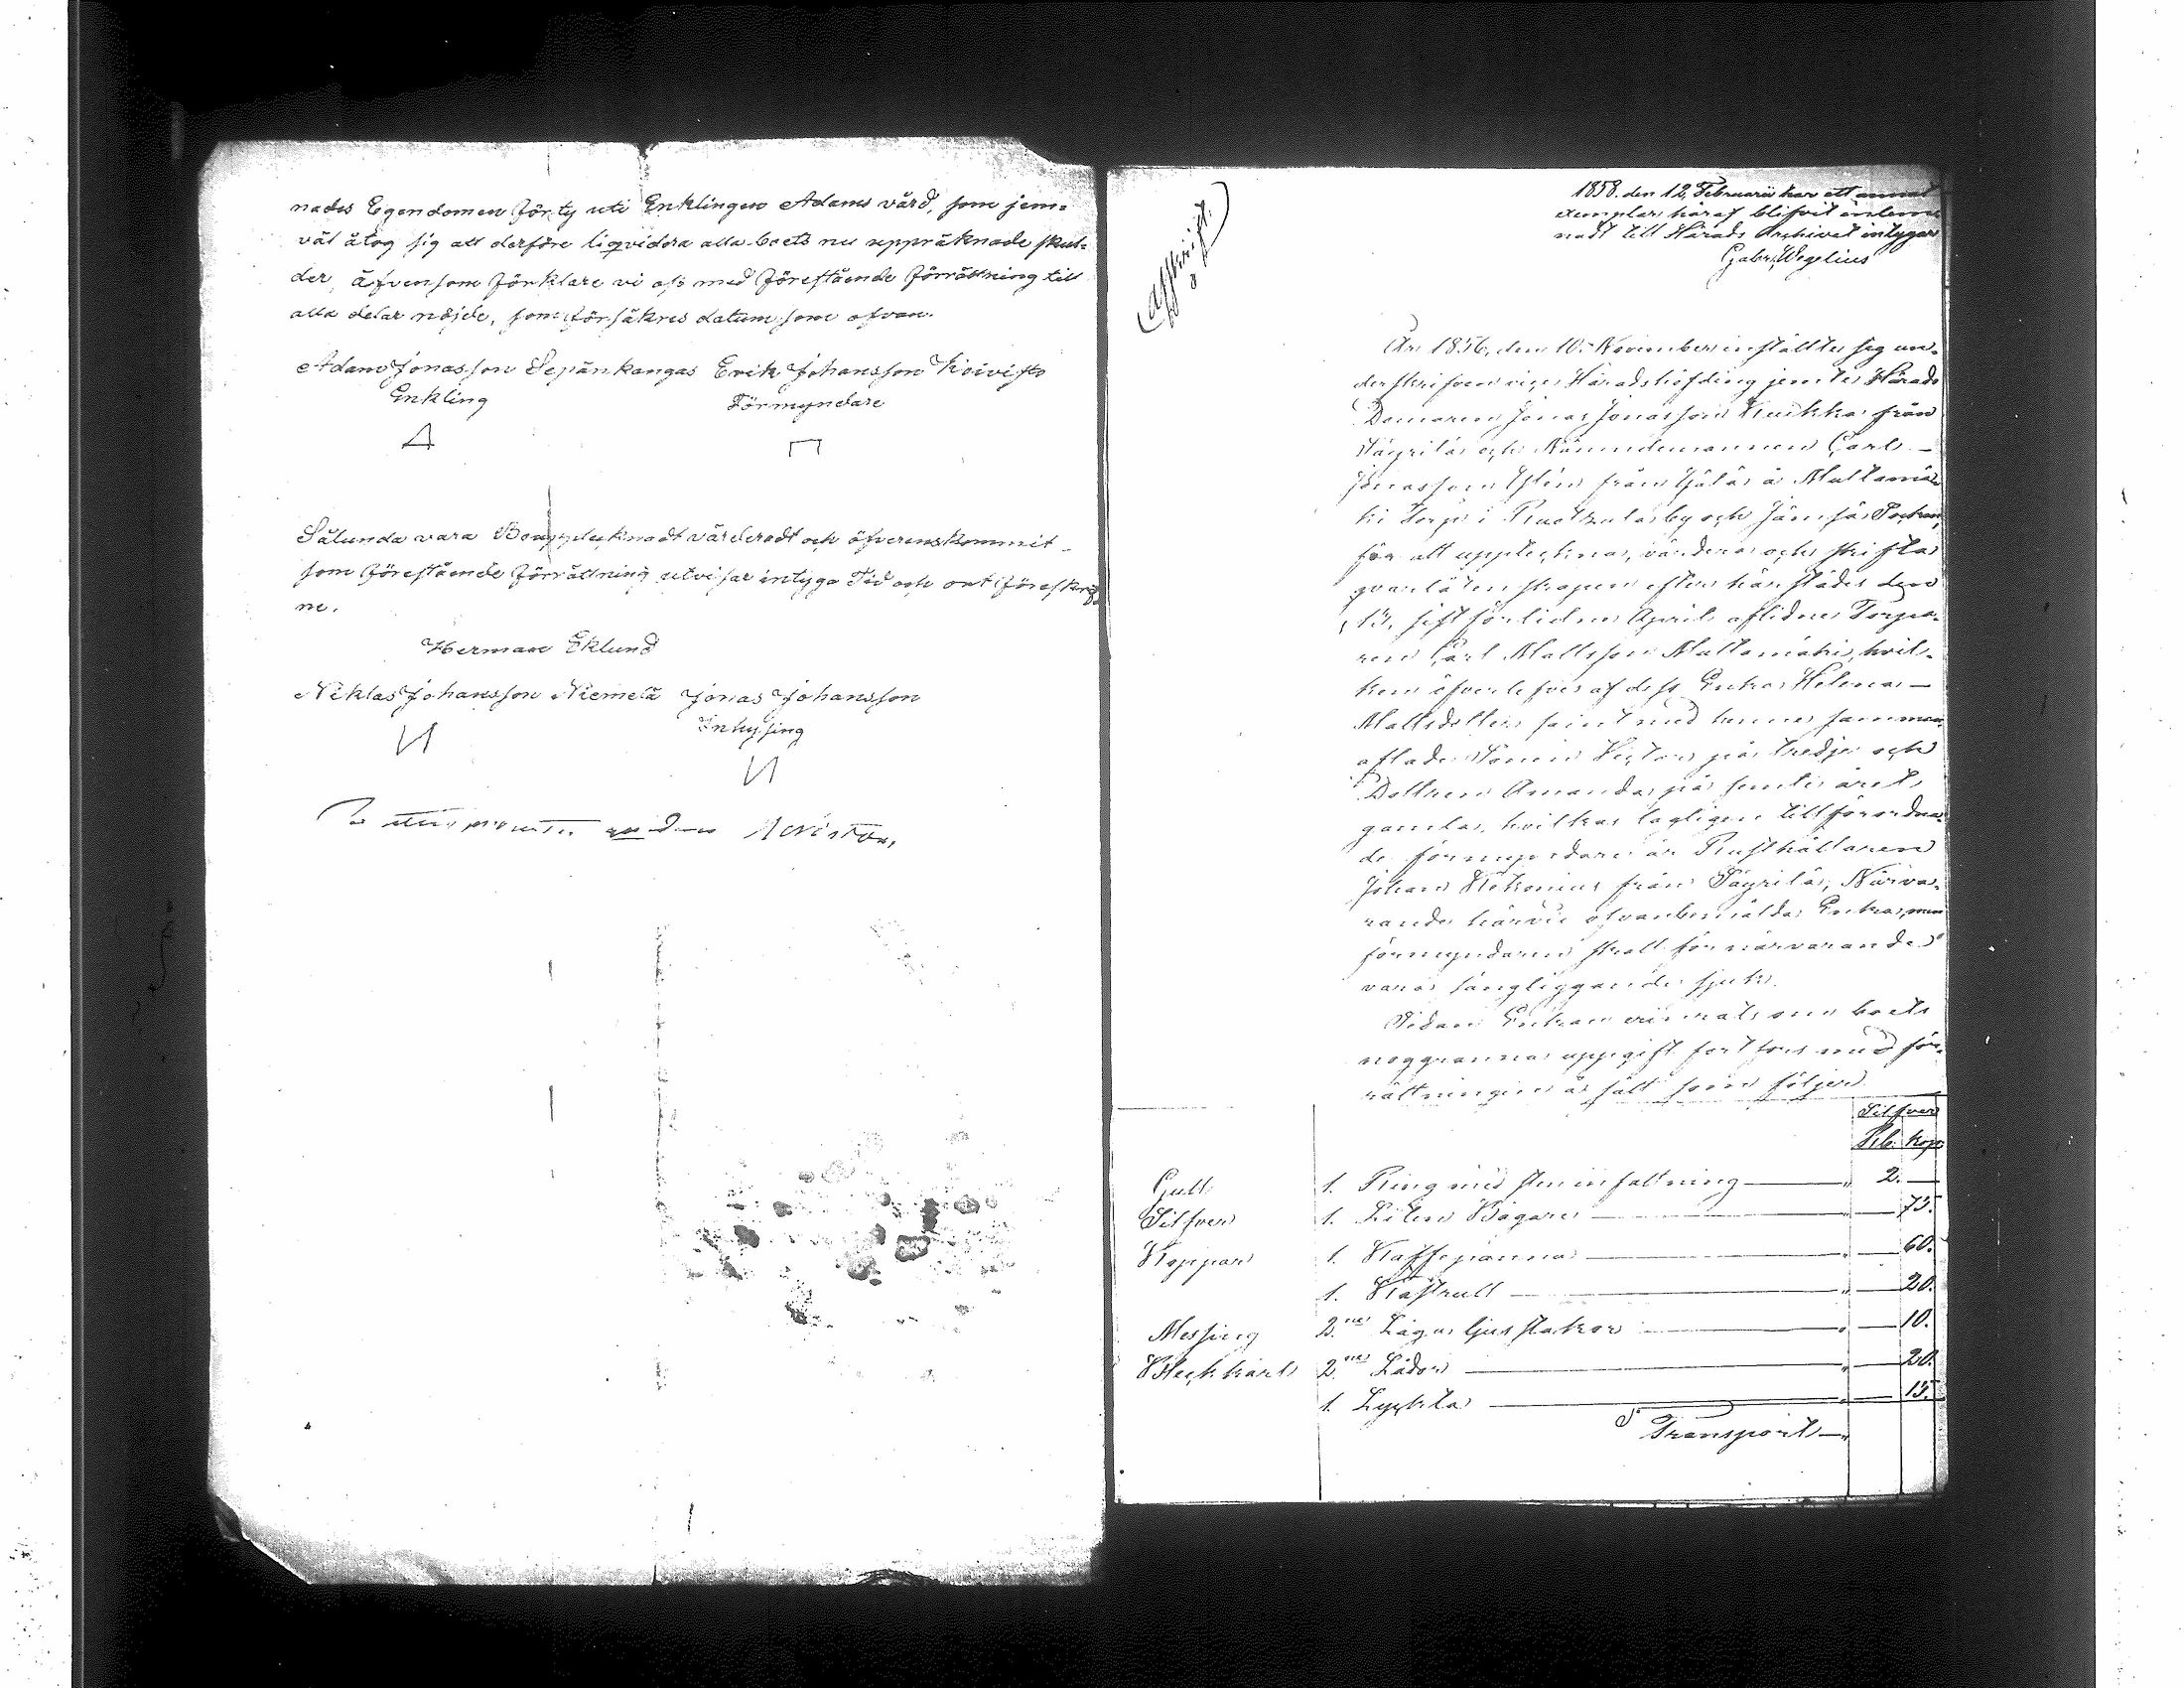 nades Egendomen förty uti Enklingen Adams vård, som jem-
väl åtog sig att derföre liqvidera alla boets nu uppräknade skul-
der, äfvensom förklare vi oss med förestående förrättning till
alla delar nöjde, som försäkres datum som ofvan.
Adam Jonasson Sepänkangas Erik Johansson Koivisto
Enkling Förmyndare
Sålunda vara Bouppteknadt värderadt och öfverenskommit
som förestående förrättning utvisar intyga Tid och ort föreskrif
ne.
Herman Eklund
Niklas Johansson Niemelä Jonas Johansson
Inhysing
(Afskrift)
1858. den 12 Februarii har ett annat
exemplar häraf blifvit inlem
nadt till Härads Archivet intygar
Gabr. Wegelius
År 1856, den 10. November inställte sig un-
derskrifven vice Häradshöfding jemte Härads
Domaren Jonas Jonasson Kuikka från
Säyrilä och Nämndemannen Carl
Jonasson från å Mattamä
ki Torp i by och Socken,
för att uppteckna, värdera och skifta
qvarlåtenskapen efter härstädes den
13. sistförlidne April aflidne Torpa-
ren Carl Mattsson Mattamäki, hvil-
ken öfverlefves af dess Enka Helena
Mattsdotter samt med henne samman
aflade Sonen Victor på tredje och
Dottren Amanda på femte året
gamla, hvilkas lagligen tillförordna-
de förmyndare är Rusthållaren
Johan från Säyrilä, Närva-
rande härvid ofvanbemälda Enka, men
förmyndaren skall för närvarande
vara sängliggande sjuk.
Sedan Enkan erinrats om boets
noggranna uppgift fortfors med för-
rättningen å sätt som följer
Silfver
Rb. kop.
Guld 1. Ring med steninfattning 2.
Silfver 1. Liten Bägare 75.
Koppar 1. Kaffepanna 60.
1. Kastrull 20.
Messing 2ne Låga ljusstakar 10.
Bleckkärl 2ne Lådor 20.
1. Lyckta 15.
Transport